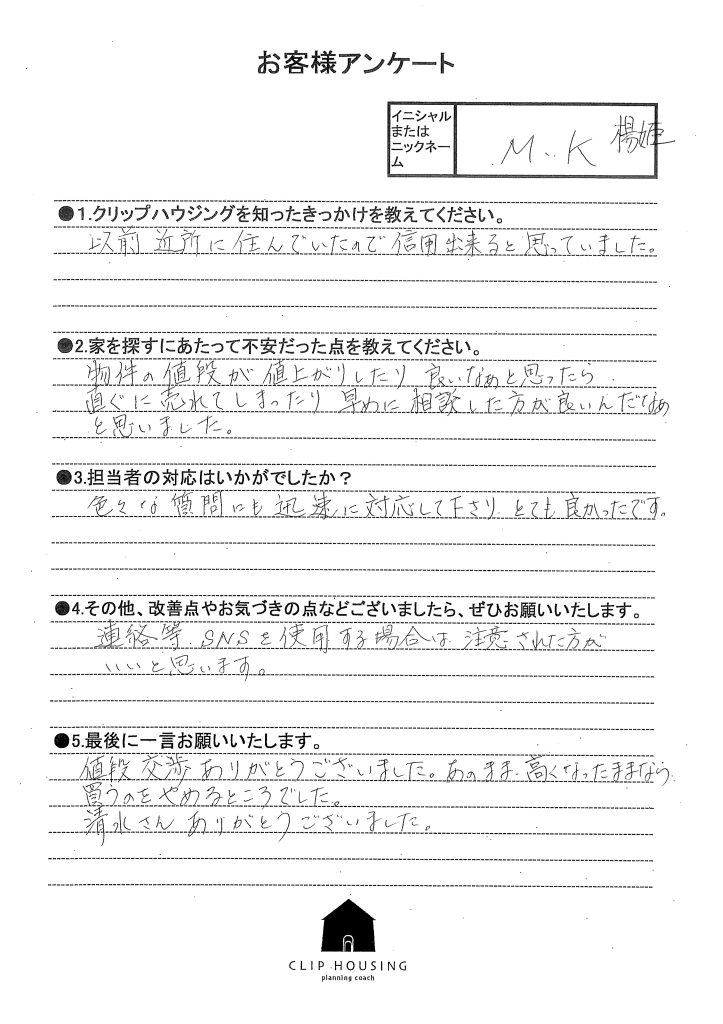 お客様アンケート
イニシャル
または
ニックネー
ム
M.K 楊姫
●1.クリップハウジングを知ったきっかけを教えてください。
以前 近所に住んでいたので信用出来ると思っていました。
●2.家を探すにあたって不安だった点を教えてください。
物件の値段が値上がりしたり 良いなぁと思ったら
直ぐに売れてしまったり 早めに相談した方が良いんだなぁ
と思いました。
●3.担当者の対応はいかがでしたか？
色々な質問にも迅速に対応して下さり とても良かったです。
●4.その他、改善点やお気づきの点などございましたら、ぜひお願いいたします。
連絡等 SNSを使用する場合は 注意された方が
いいと思います。
●5.最後に一言お願いいたします。
値段交渉ありがとうございました。あのまま 高くなったままなら
買うのをやめるところでした。
清水さん ありがとうございました。
CLIP HOUSING
planning coach